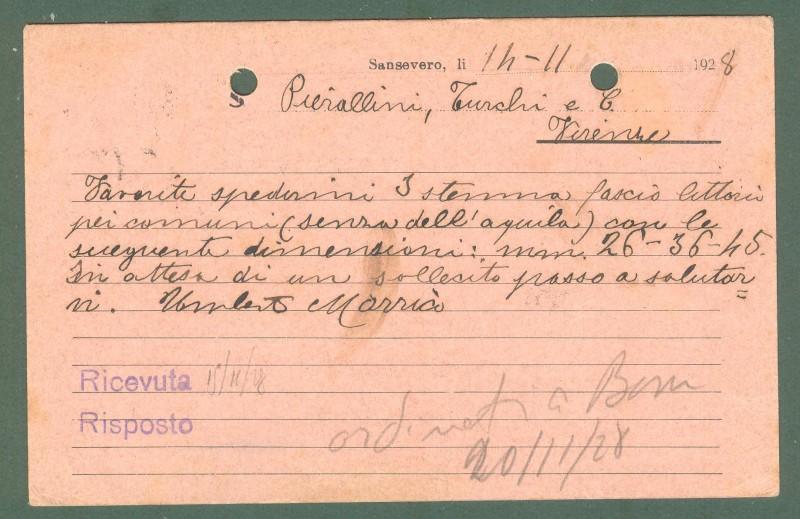 Sansevero, li 14-11 1928
Pierallini, Turchi e C.
Firenze
Favorite spedirmi 3 stemma fascio littorio
pei comuni (senza dell'aquila) con le
sueguente dimensioni: mm. 26-36-45.
In attesa di un sollecito passo a salutar
vi. Umberto
Ricevuta 15/11/28
Risposto
ordinati a
20/11/28